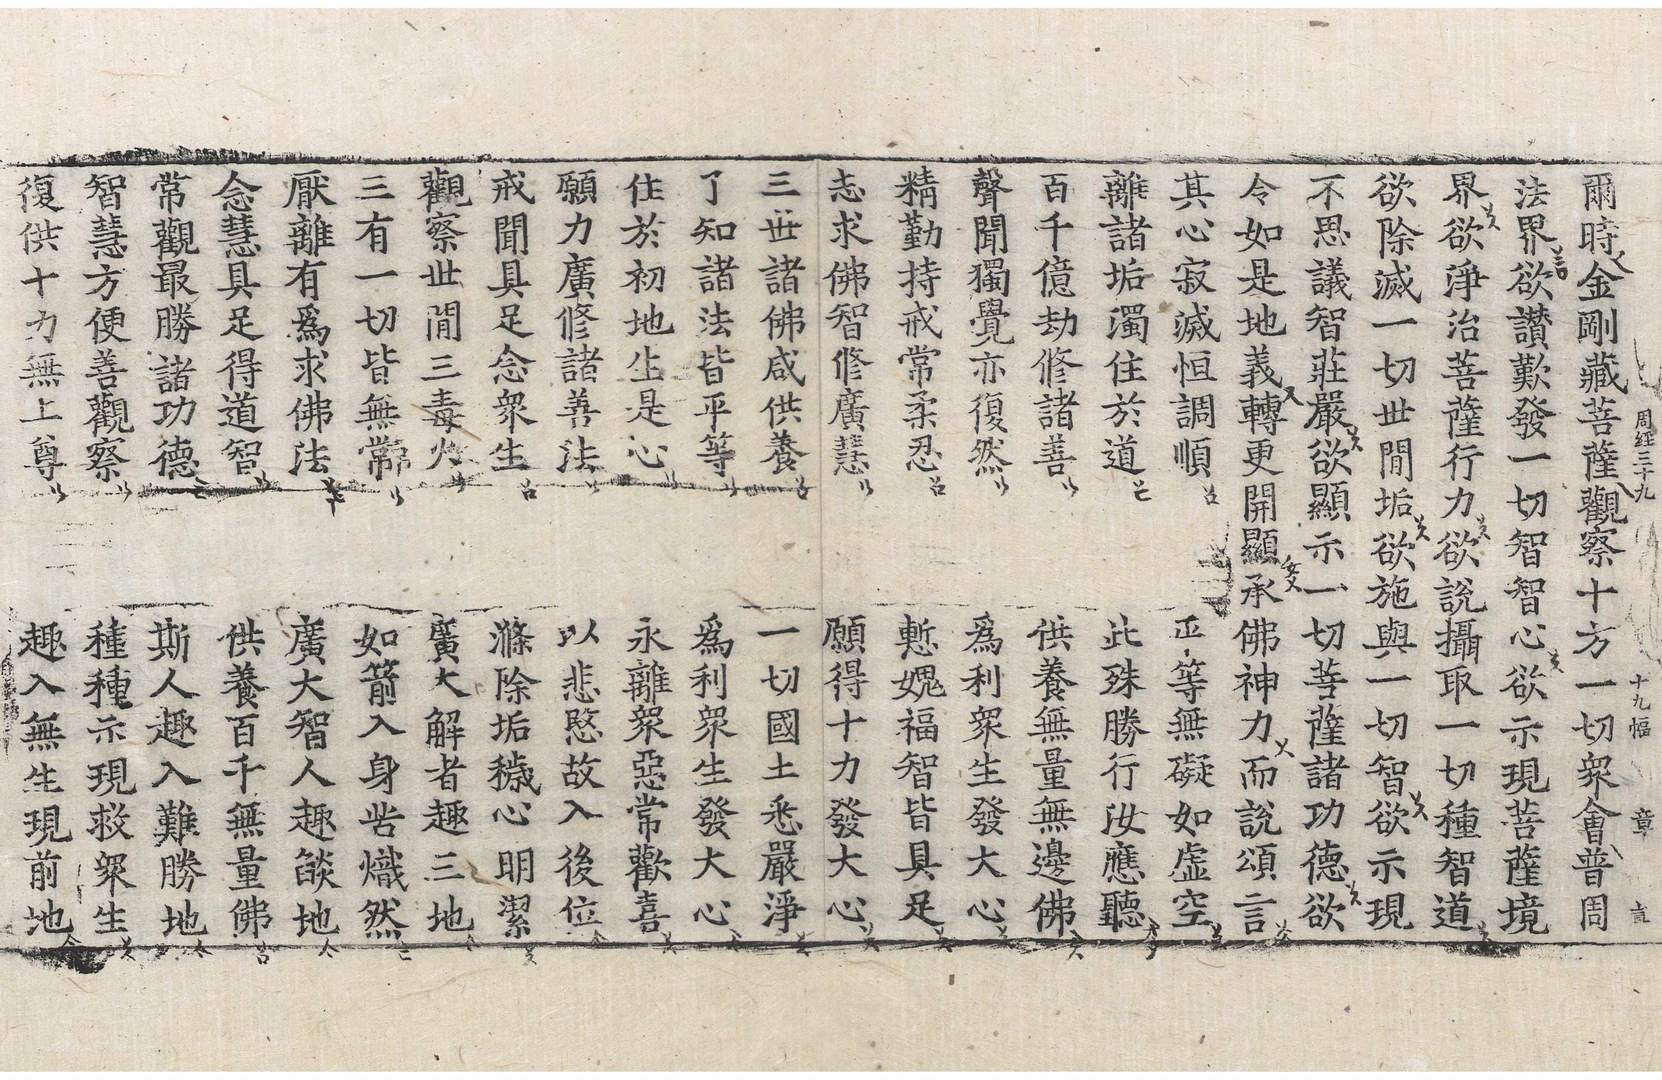 周經三十九 十九幅 章
爾時金剛藏菩薩觀察十方一切眾會普周
法界欲讚歎發一切智智心欲示現菩薩境
界欲淨治菩薩行力欲說攝取一切種智道
欲除滅一切世間垢欲施與一切智欲示現
不思議智莊嚴欲顯示一切菩薩諸功德欲
令如是地義轉更開顯承佛神力而說頌言
其心寂滅恒調順 正等無礙如虛空
離諸垢濁住於道 此殊勝行汝應聽
百千億劫修諸善 供養無量無邊佛
聲聞獨覺亦復然 為利眾生發大心
精勤持戒常柔忍 慙愧福智皆具足
志求佛智修廣慧 願得十力發大心
三世諸佛咸供養 一切國土悉嚴淨
了知諸法皆平等 為利眾生發大心
住於初地生是心 永離眾惡常歡喜
願力廣修諸善法 以悲愍故入後位
戒聞具足念眾生 滌除垢穢心明潔
觀察世間三毒火 廣大解者趣三地
三有一切皆無常 如箭入身苦熾然
厭離有為求佛法 廣大智人趣燄地
念慧具足得道智 供養百千無量佛
常觀最勝諸功德 斯人趣入難勝地
智慧方便善觀察 種種示現救眾生
復供十力無上尊 趣入無生現前地